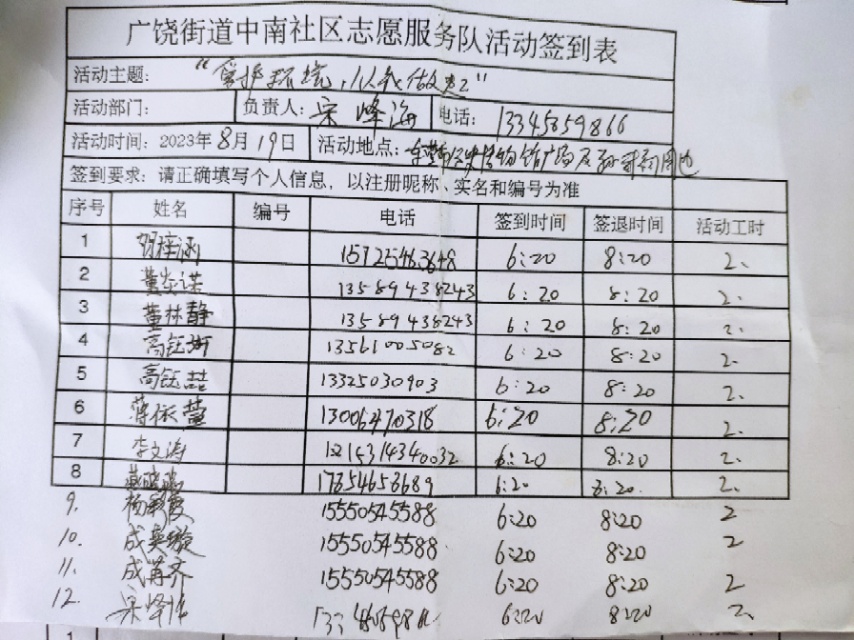 广饶街道中南社区志愿服务队活动签到表
活动主题： “爱护环境，从我做起”
活动部门： 负责人：宋峰海 电话：13345859866
活动时间：2023年8月19日 活动地点：
签到要求：请正确填写个人信息，以注册昵称、实名和编号为准
序号 姓名 编号 电话 签到时间 签退时间 活动工时
1 15725463648 6:20 8:20 2、
2 13589438243 6:20 8:20 2、
3 董林静 13589438243 6:20 8:20 2、
4 13561005082 6:20 8:20 2、
5 高钰喆 13325030903 6:20 8:20 2、
6 薄依萱 13006470318 6:20 8:20 2、
7 李文涛 6:20 8:20 2、
8 17354653689 6:20 8:20 2、
9. 杨彩霞 15550545588 6:20 8:20 2
10. 成奕璇 15550545588 6:20 8:20 2
11. 成苒齐 15550545588 6:20 8:20 2
12. 宋峰海 6:20 8:20 2、